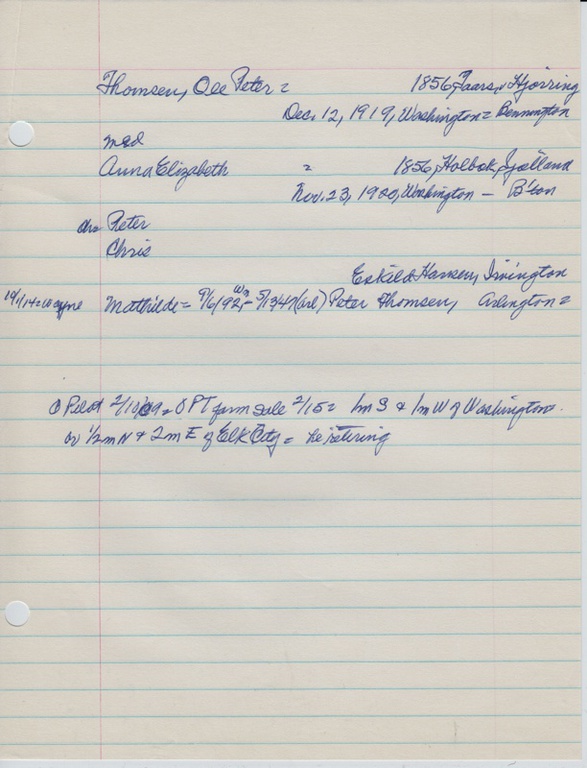 Thomsen, Ole Peter = 1856, Taars, Hjorring
Dec. 12, 1919, Washington = Bennington
md
Anna Elizabeth = 1856, Holbok, Sjælland
Nov. 23, 1920, Washington – B'ton
Peter
Chris
Eskild Hansen, Irvington
Mathilde = 9/6/92, Wn – 5/1347 (arl) Peter Thomsen, Arlington =
Pilot 2/10/09 = OPT farm sale 2/15 = 1m S & 1m W of Washington.
or 1/2 m N & 2 m E of Elk City = he retiring